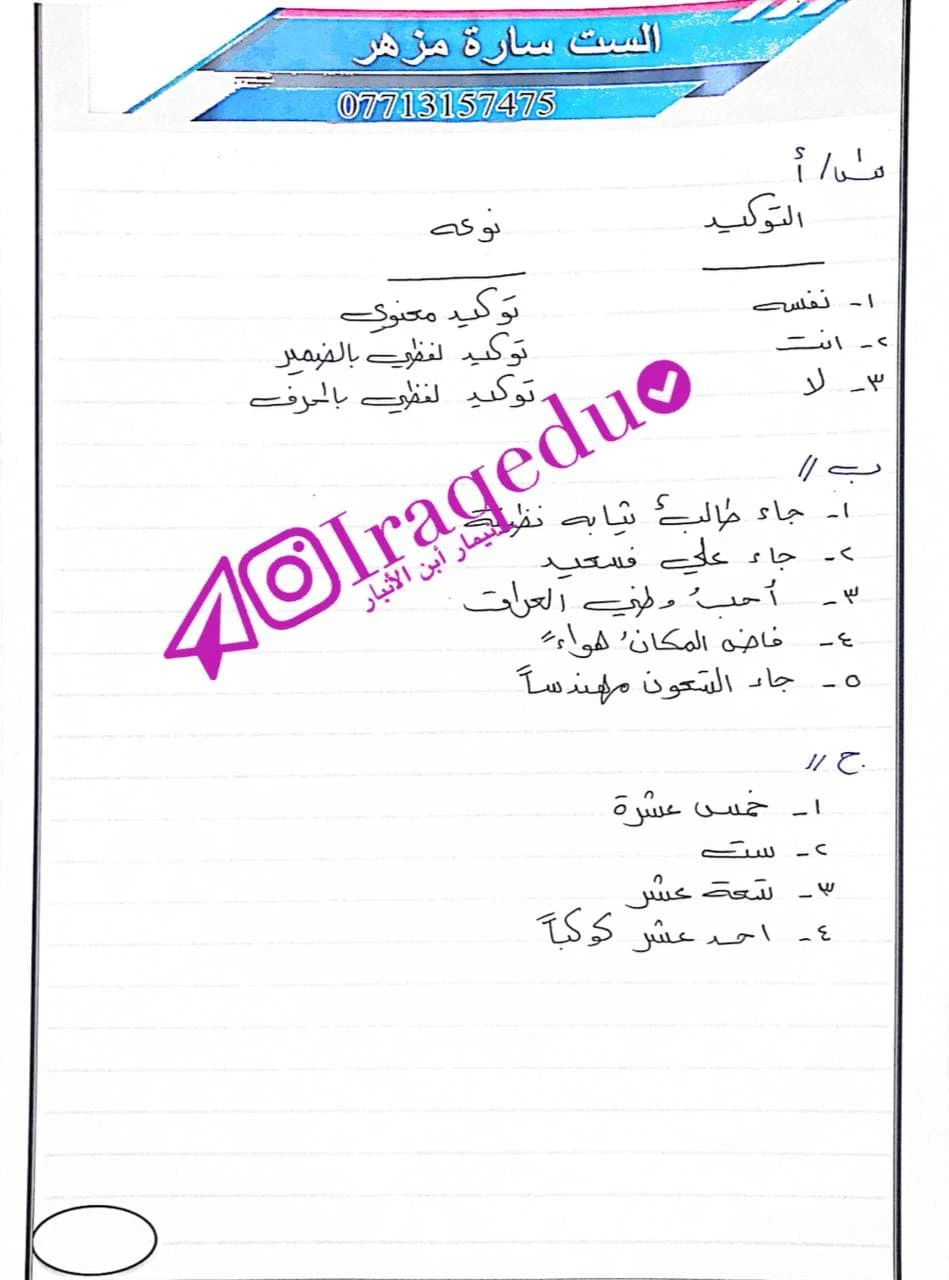 الست سارة مزهر
07713157475
س١/ أ
التوكيد نوعه
١- نفسه توكيد معنوي
٢- انت توكيد لفظي بالضمير
٣- لا توكيد لفظي بالحرف
Iraqedu
تيمار أبن الأنبار
ب//
١- جاء طالبٌ ثيابه نظيفة
٢- جاء علي فسعيد
٣- أحبُ وطني العراق
٤- فاض المكانُ هواءً
٥- جاء مهندساً
ج//
١- خمس عشرة
٢- ست
٣- تسعة عشر
٤- احد عشر كوكباً